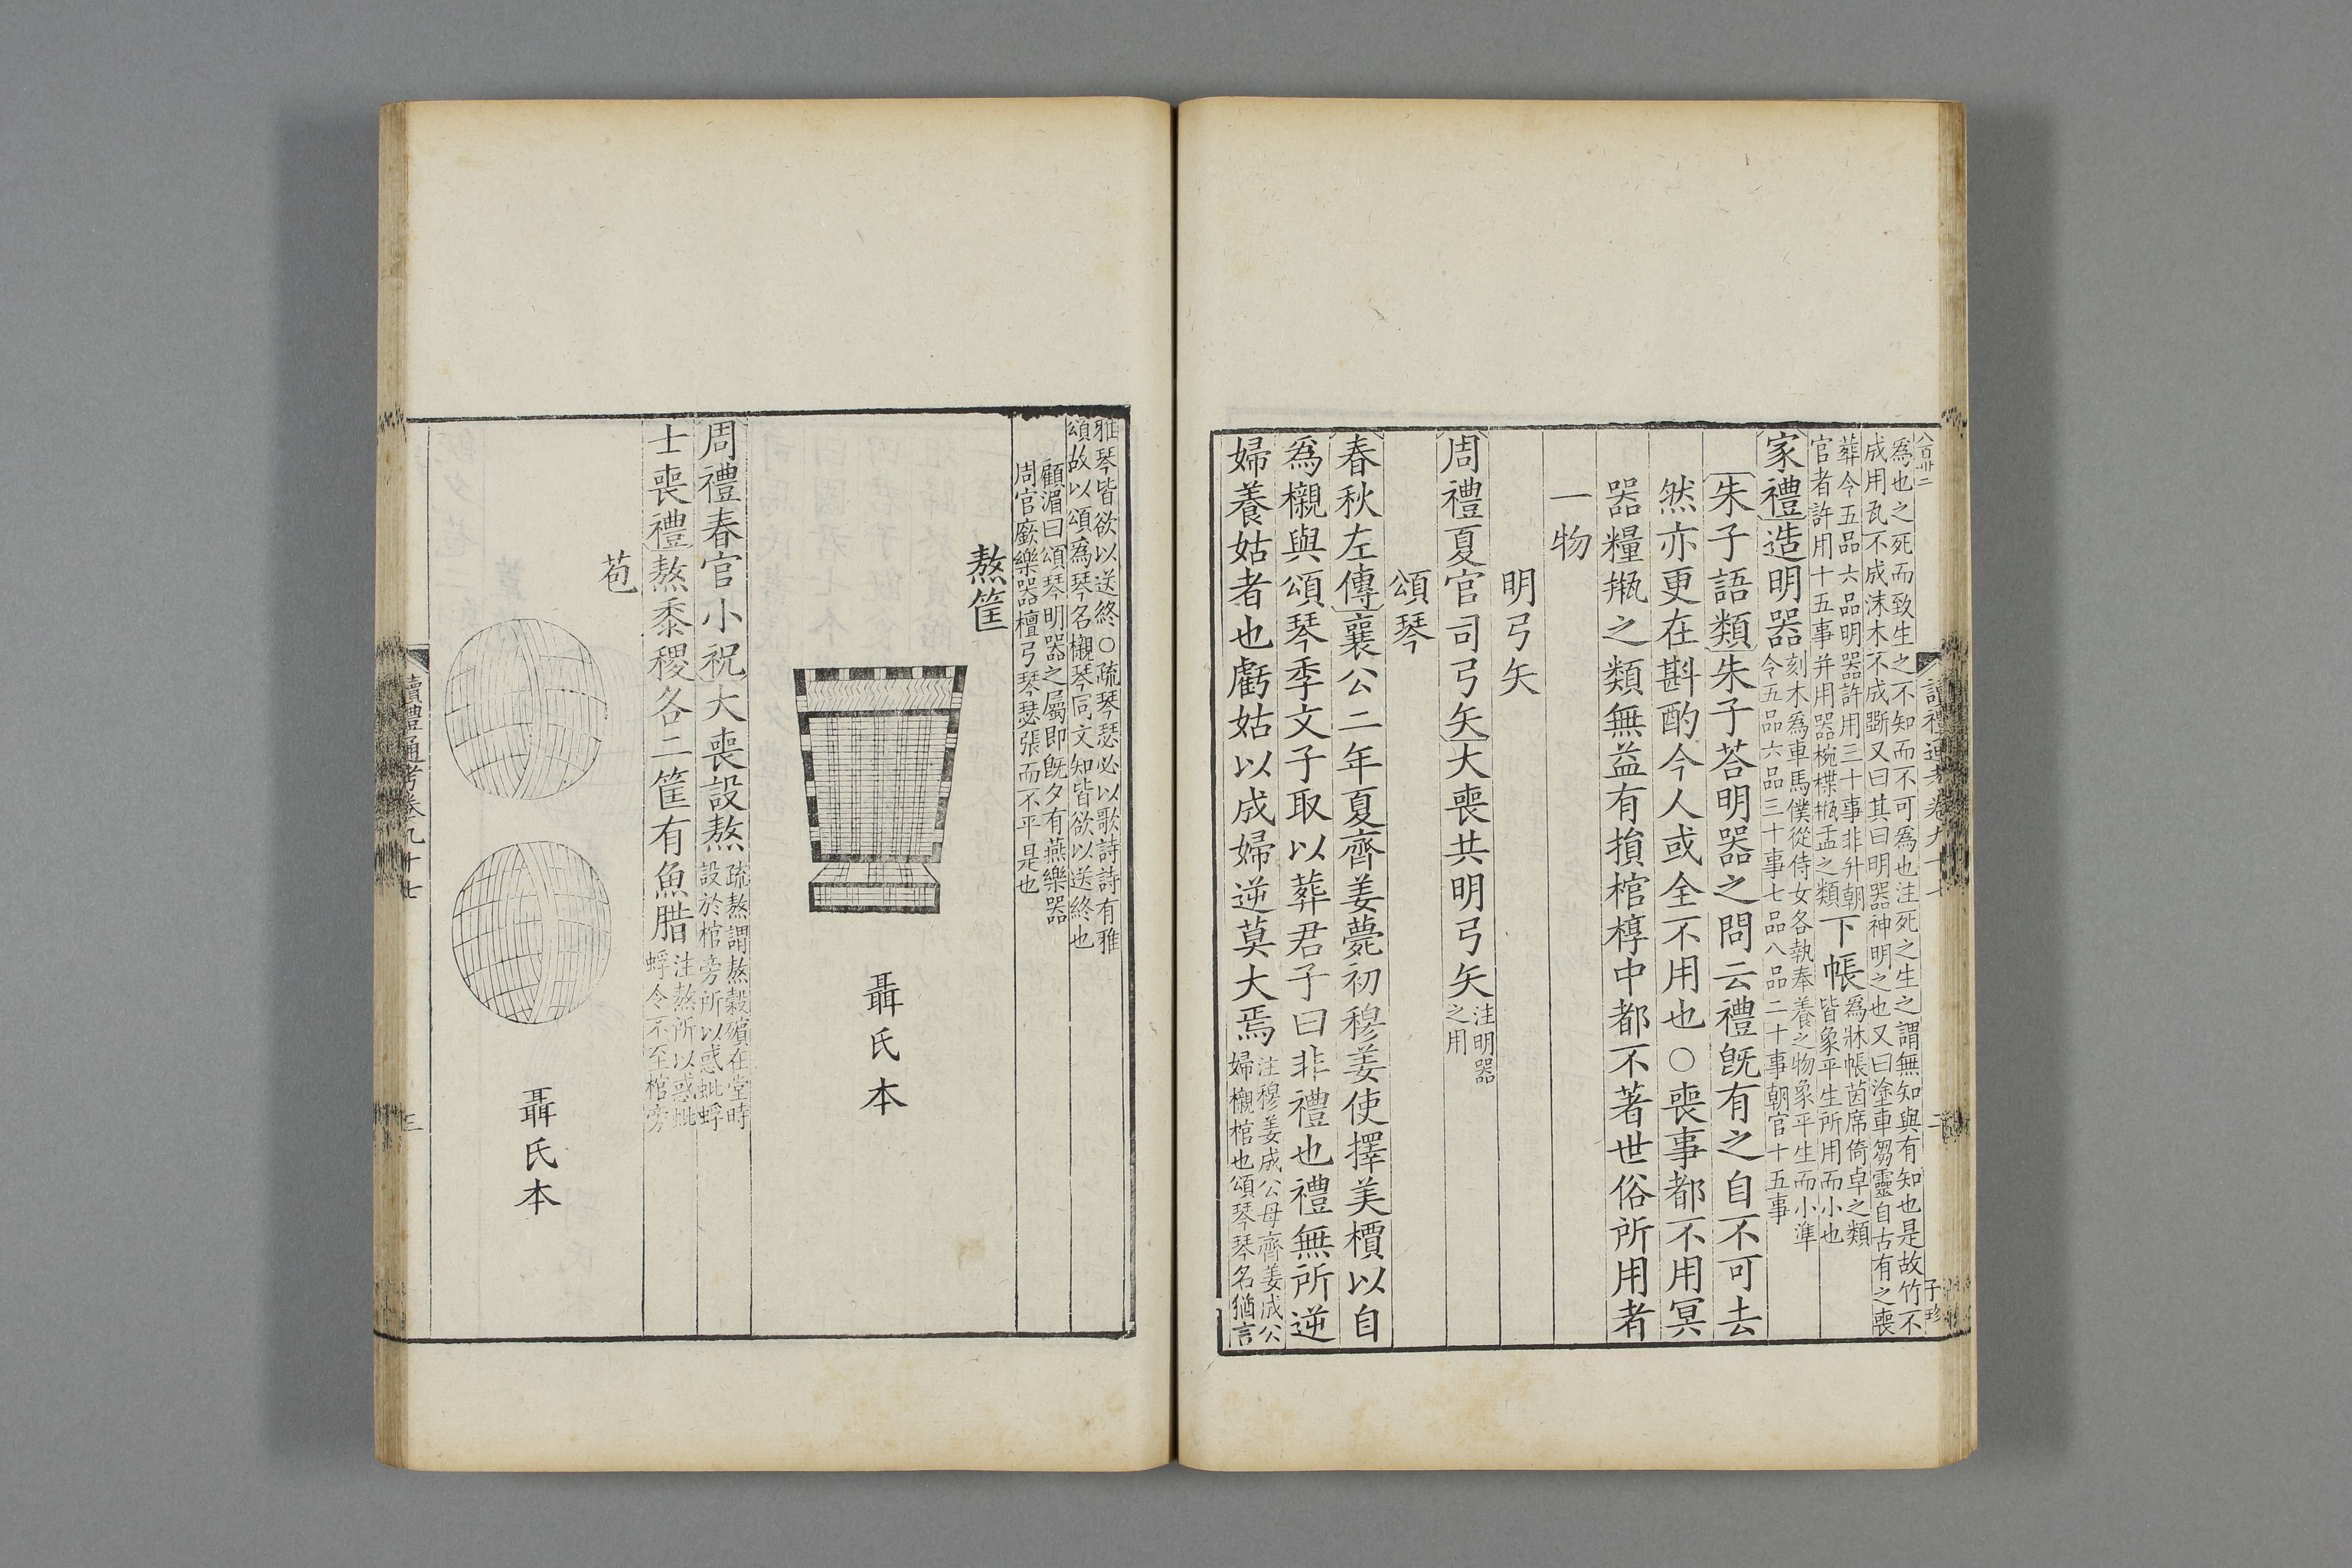 八百卅二
讀禮通考卷九十七
二
子珍
爲也之死而致生之不知而不可爲也注死之生之謂無知與有知也是故竹不
成用瓦不成沬木不成斲又曰其曰明器神明之也又曰塗車芻靈自古有之喪
葬令五品六品明器許用三十事非升朝
官者許用十五事并用器椀楪瓶盂之類
下帳
爲牀帳茵席倚卓之類
皆象平生所用而小也
家禮造明器
刻木爲車馬僕從侍女各執奉養之物象平生而小準
令五品六品三十事七品八品二十事朝官十五事
朱子語類朱子荅明器之問云禮旣有之自不可去
然亦更在斟酌今人或全不用也○喪事都不用冥
器糧瓶之類無益有損棺椁中都不著世俗所用者
一物
明弓矢
周禮夏官司弓矢大喪共明弓矢
注明器
之用
頌琴
春秋左傳襄公二年夏齊姜薨初穆姜使擇美檟以自
爲櫬與頌琴季文子取以葬君子曰非禮也禮無所逆
婦養姑者也虧姑以成婦逆莫大焉
注穆姜成公母齊姜成公
婦櫬棺也頌琴琴名猶言
雅琴皆欲以送終○疏琴瑟必以歌詩詩有雅
頌故以頌爲琴名櫬琴同文知皆欲以送終也
顧湄曰頌琴明器之屬即旣夕有燕樂器
周官廞樂器檀弓琴瑟張而不平是也
熬筐
聶氏本
周禮春官小祝大喪設熬
疏熬謂熬穀殯在堂時
設於棺旁所以惑蚍蜉
士喪禮熬黍稷各二筐有魚腊
注熬所以惑蚍
蜉令不至棺旁
苞
聶氏本
讀禮通考卷九十七
三